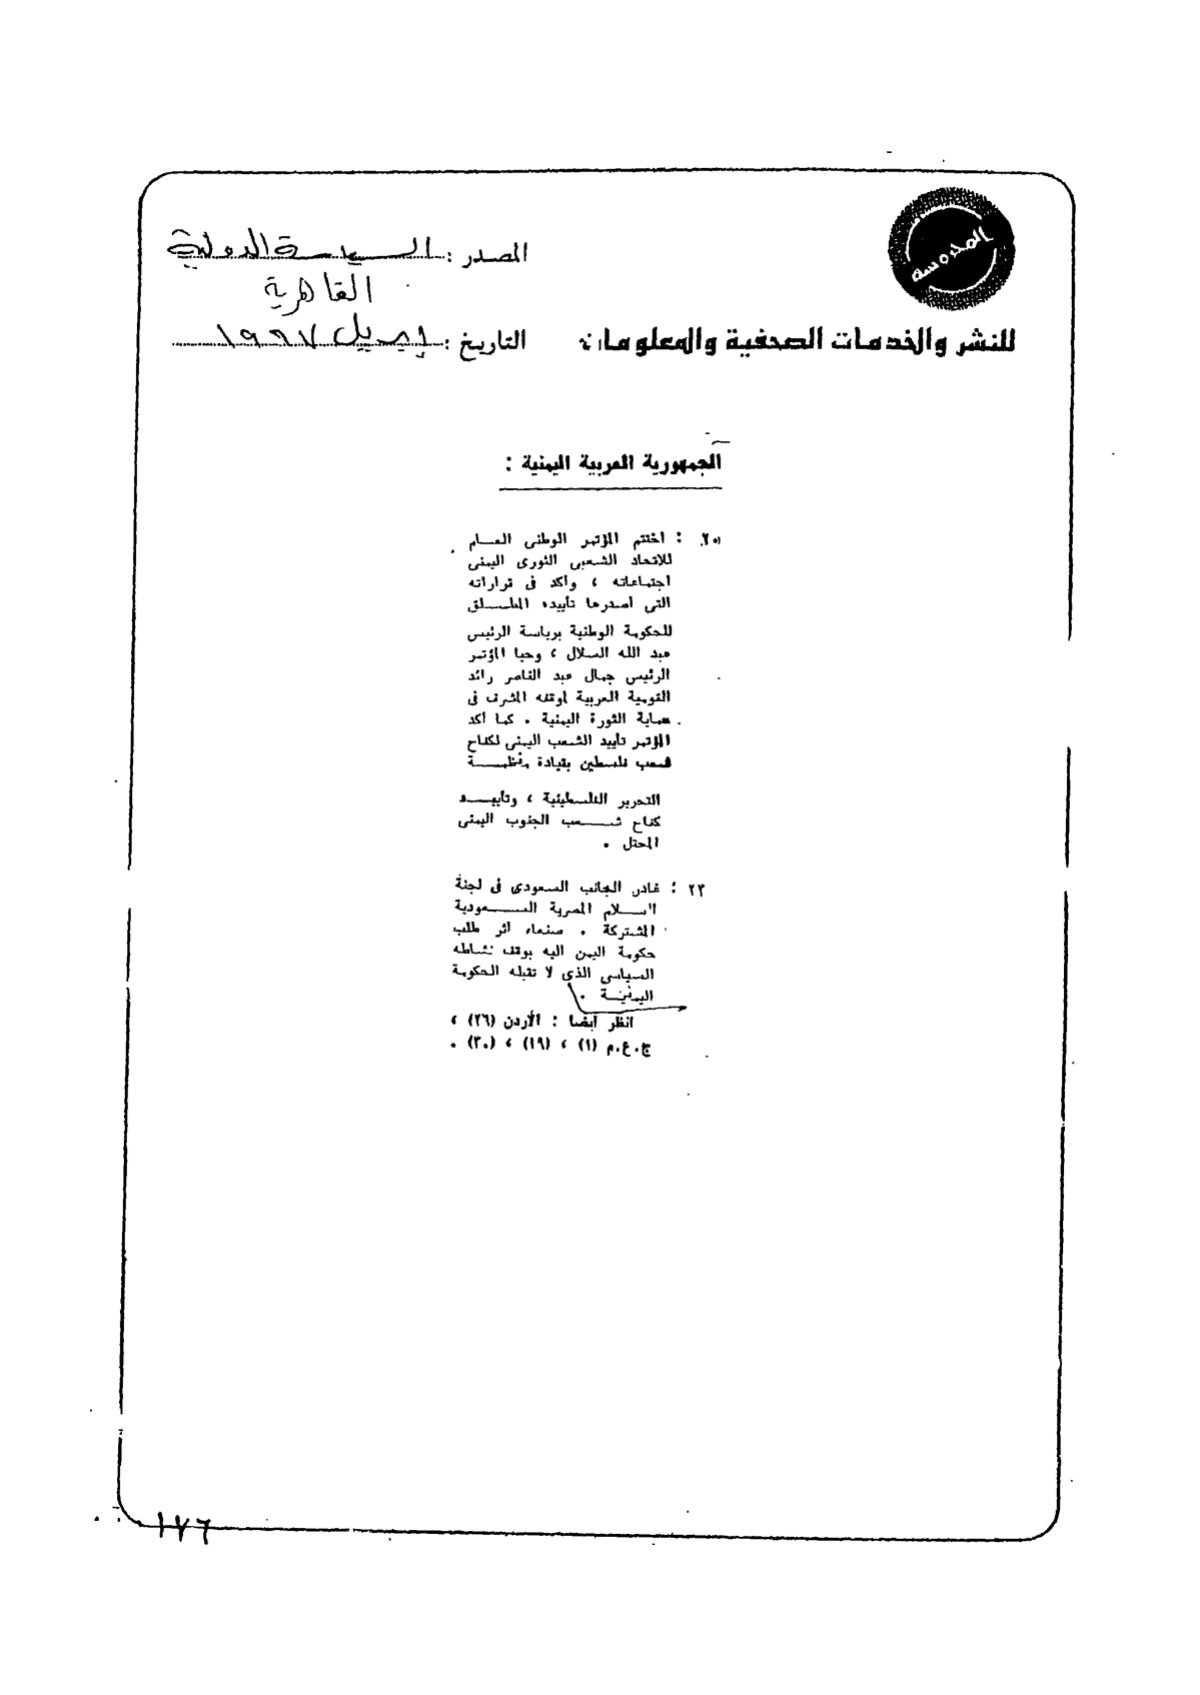 المحروسة
المصدر : السياسة الدولية
القاهرية
للنشر والخدمات الصحفية والمعلومات
التاريخ : إبريل ١٩٦٧
الجمهورية العربية اليمنية :
٢٠ : اختتم المؤتمر الوطنى العـــام
للاتحاد الشعبى الثورى اليمنى
اجتماعاته ، وأكد فى قراراته
التى أصدرها تأييده المطـــلق
للحكومة الوطنية برياسة الرئيس
عبد الله السلال ، وحيا المؤتمر
الرئيس جمال عبد الناصر رائد
القومية العربية لموقفه المشرف فى
حماية الثورة اليمنية . كما أكد
المؤتمر تأييد الشعب اليمنى لكفاح
شعب فلسطين بقيادة منظمـــة
التحرير الفلسطينية ، وتأييـــد
كفاح شـــعب الجنوب اليمنى
المحتل .
٢٣ : غادر الجانب السعودى فى لجنة
السـلام المصرية الســـعودية
المشتركة . صنعاء اثر طلب
حكومة اليمن اليه بوقف نشاطه
السياسى الذى لا تقبله الحكومة
اليمنيـة .
انظر أيضا : الأردن (٢٦) ،
ج.ع.م (١) ، (١٩) ، (٣٠) .
١٧٦